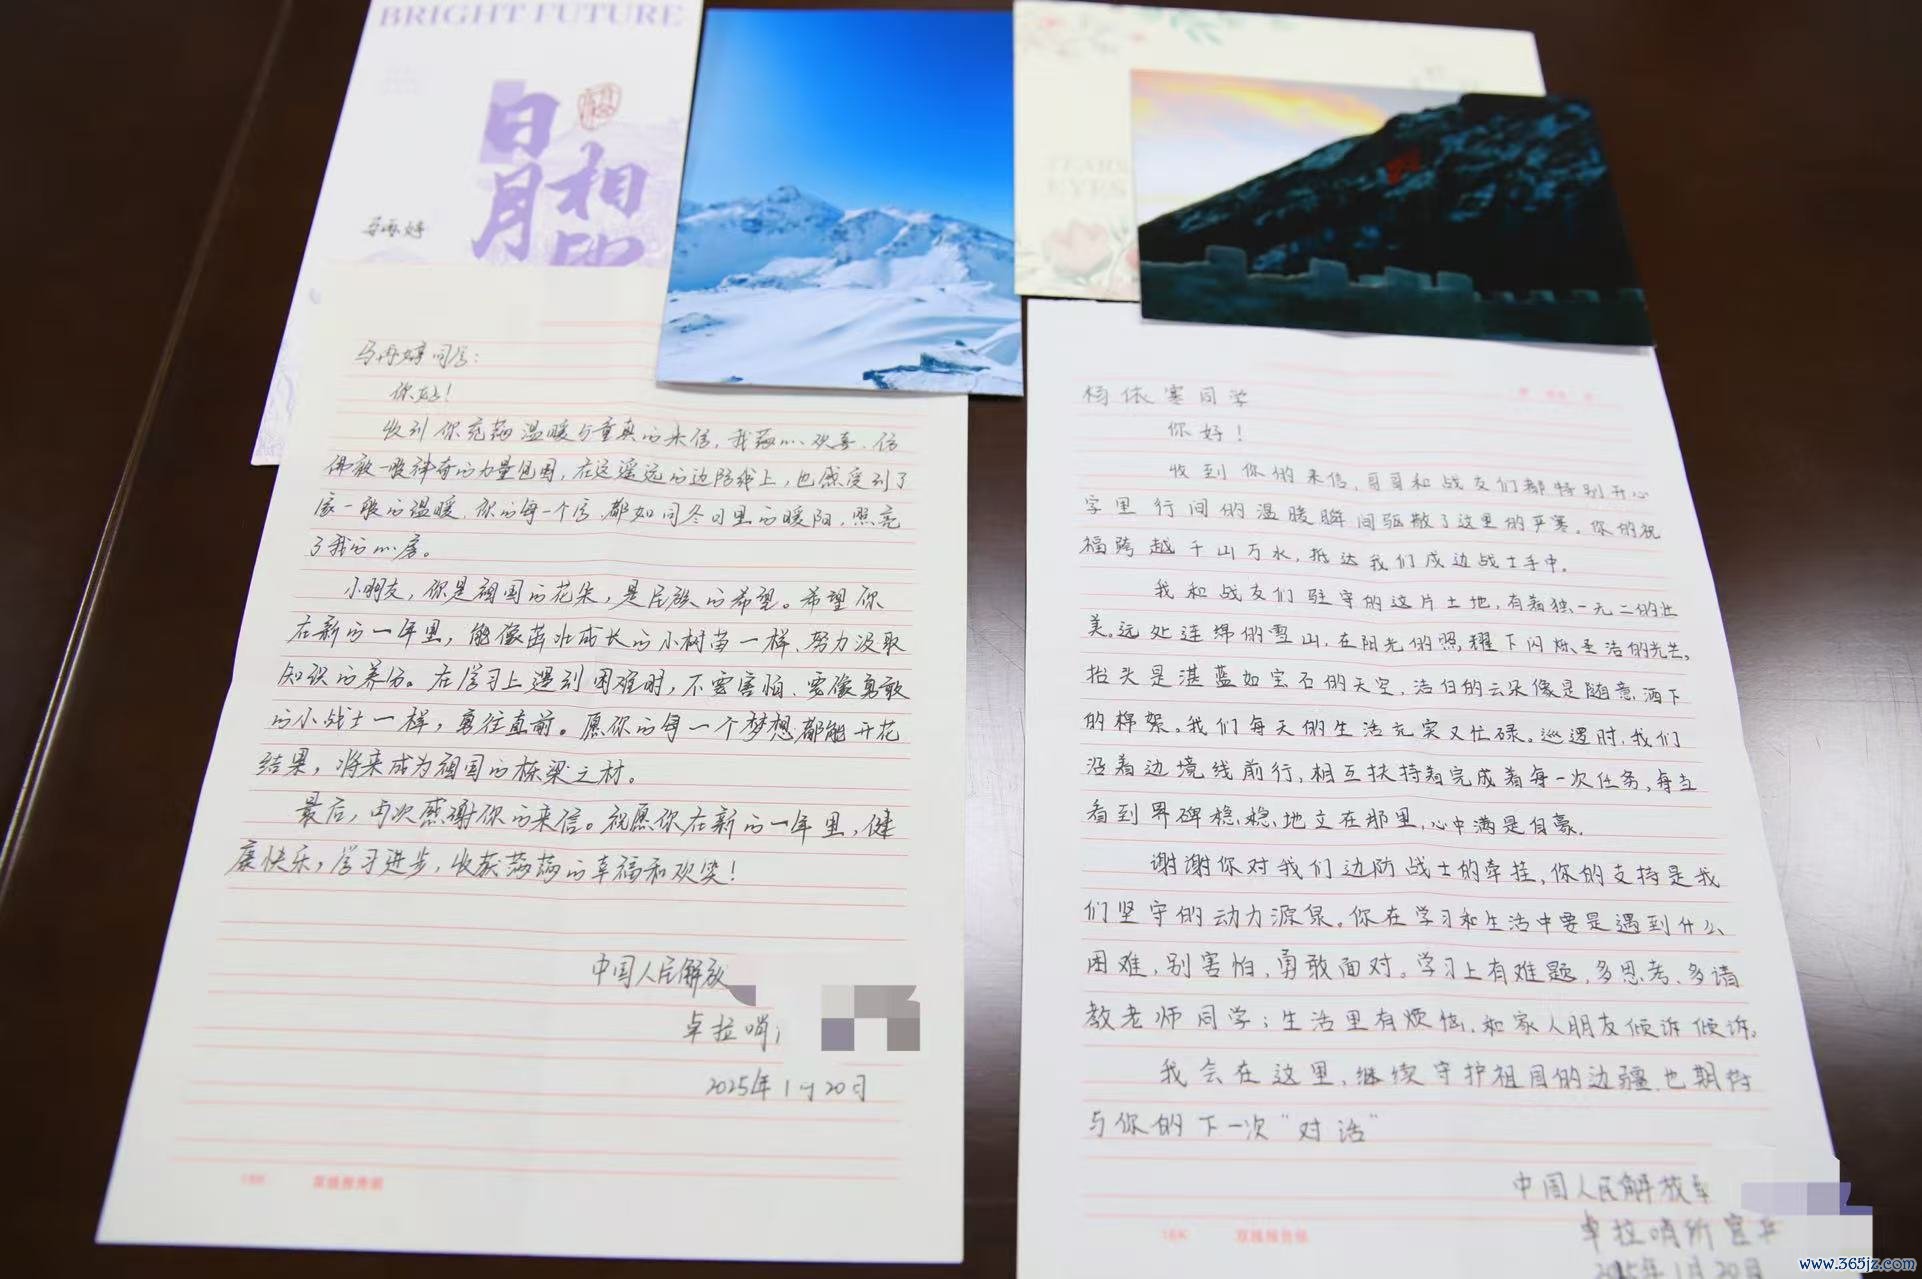 BRIGHT FUTURE
日月
相印
马再婷
TEARS
EYES
马再婷同学：
你好！
收到你充满温暖与童真的来信，我满心欢喜，仿
佛被一股神奇的力量包围，在这遥远的边防线上，也感受到了
家一般的温暖，你的每一个字，都如同冬日里的暖阳，照亮
了我的心房。
小朋友，你是祖国的花朵，是民族的希望。希望你
在新的一年里，能像茁壮成长的小树苗一样，努力汲取
知识的养分。在学习上遇到困难时，不要害怕，要像勇敢
的小战士一样，勇往直前。愿你的每一个梦想都能开花
结果，将来成为祖国的栋梁之材。
最后，再次感谢你的来信。祝愿你在新的一年里，健
康快乐，学习进步，收获满满的幸福和欢笑！
中国人民解放
卓拉哨
2025年1月20日
16K 双线报告纸
杨依寒同学
你好！
收到你的来信，哥哥和战友们都特别开心
字里行间的温暖瞬间驱散了这里的严寒。你的祝
福跨越千山万水，抵达我们戍边战士手中。
我和战友们驻守的这片土地，有着独一无二的壮
美。远处连绵的雪山，在阳光的照耀下闪烁圣洁的光芒。
抬头是湛蓝如宝石的天空，洁白的云朵像是随意洒下
的棉絮。我们每天的生活充实又忙碌。巡逻时，我们
沿着边境线前行，相互扶持着完成着每一次任务，每当
看到界碑稳稳地立在那里，心中满是自豪。
谢谢你对我们边防战士的牵挂，你的支持是我
们坚守的动力源泉。你在学习和生活中要是遇到什么
困难，别害怕，勇敢面对。学习上有难题，多思考、多请
教老师同学；生活里有烦恼，和家人朋友倾诉倾诉。
我会在这里，继续守护祖国的边疆，也期待
与你的下一次“对话”
中国人民解放军
卓拉哨所官兵
2025年1月20日
16K 双线报告纸
www.365jz.com